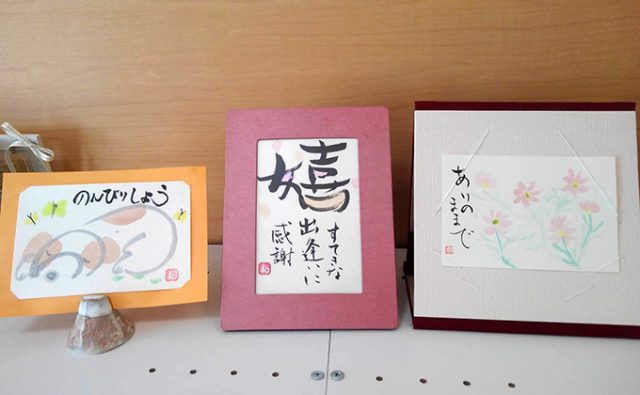 のんびりしょう
嬉
すてきな
出逢いに
感謝
ありの
ままで